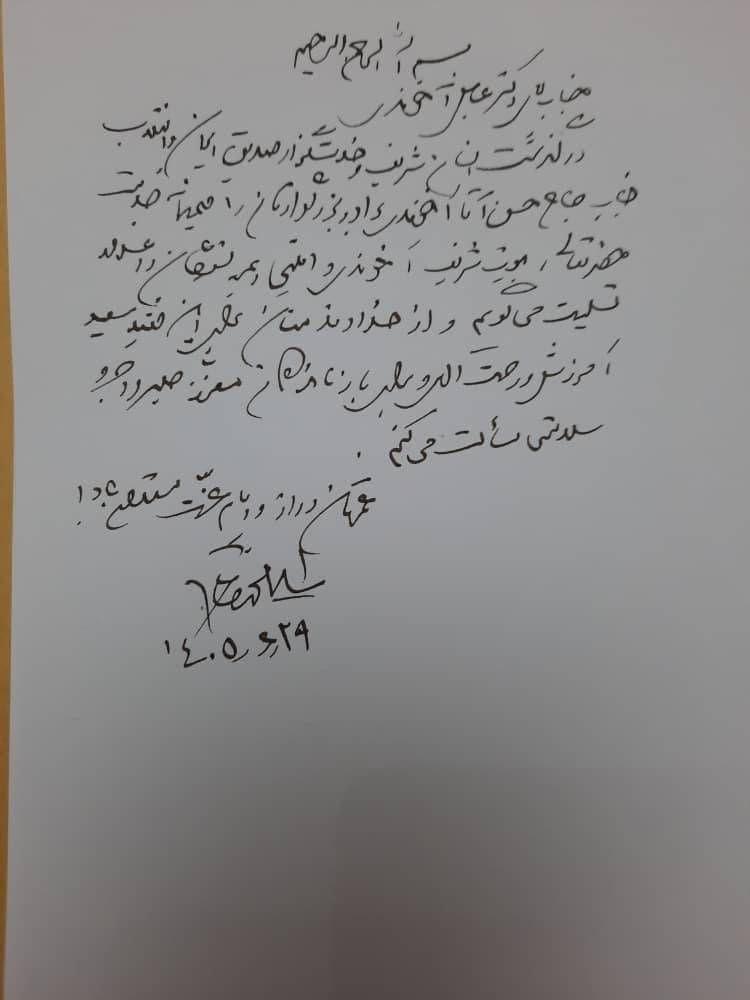 بسم الله الرحمن الرحیم
جناب آقای دکتر عباس آخوندی
درگذشت انسان شریف و خدمتگزار صدیق ایران و انقلاب
جناب حاج حسن آقا آخوندی برادر بزرگوارتان را صمیمانه خدمت
حضرتعالی، بیوت شریف آخوندی و همه بستگان داغدار
تسلیت می‌گویم و از خداوند منان برای آن فقید سعید
آمرزش و رحمت الهی و برای بازماندگان معزز صبر و اجر و
سلامتی مسألت می‌کنم.
عمرتان دراز و ایام عزت مستدام باد!
۱۴۰۵٫۶٫۲۹